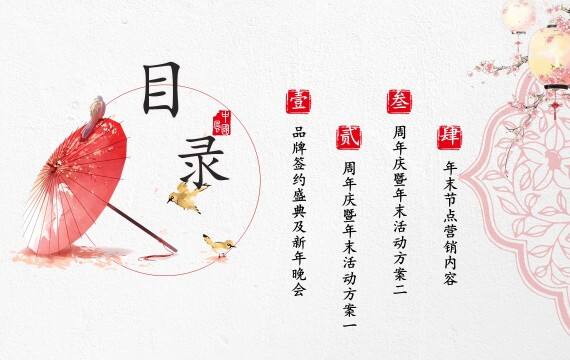 目录
中国风
壹
品牌签约盛典及新年晚会
贰
周年庆暨年末活动方案一
叁
周年庆暨年末活动方案二
肆
年末节点营销内容